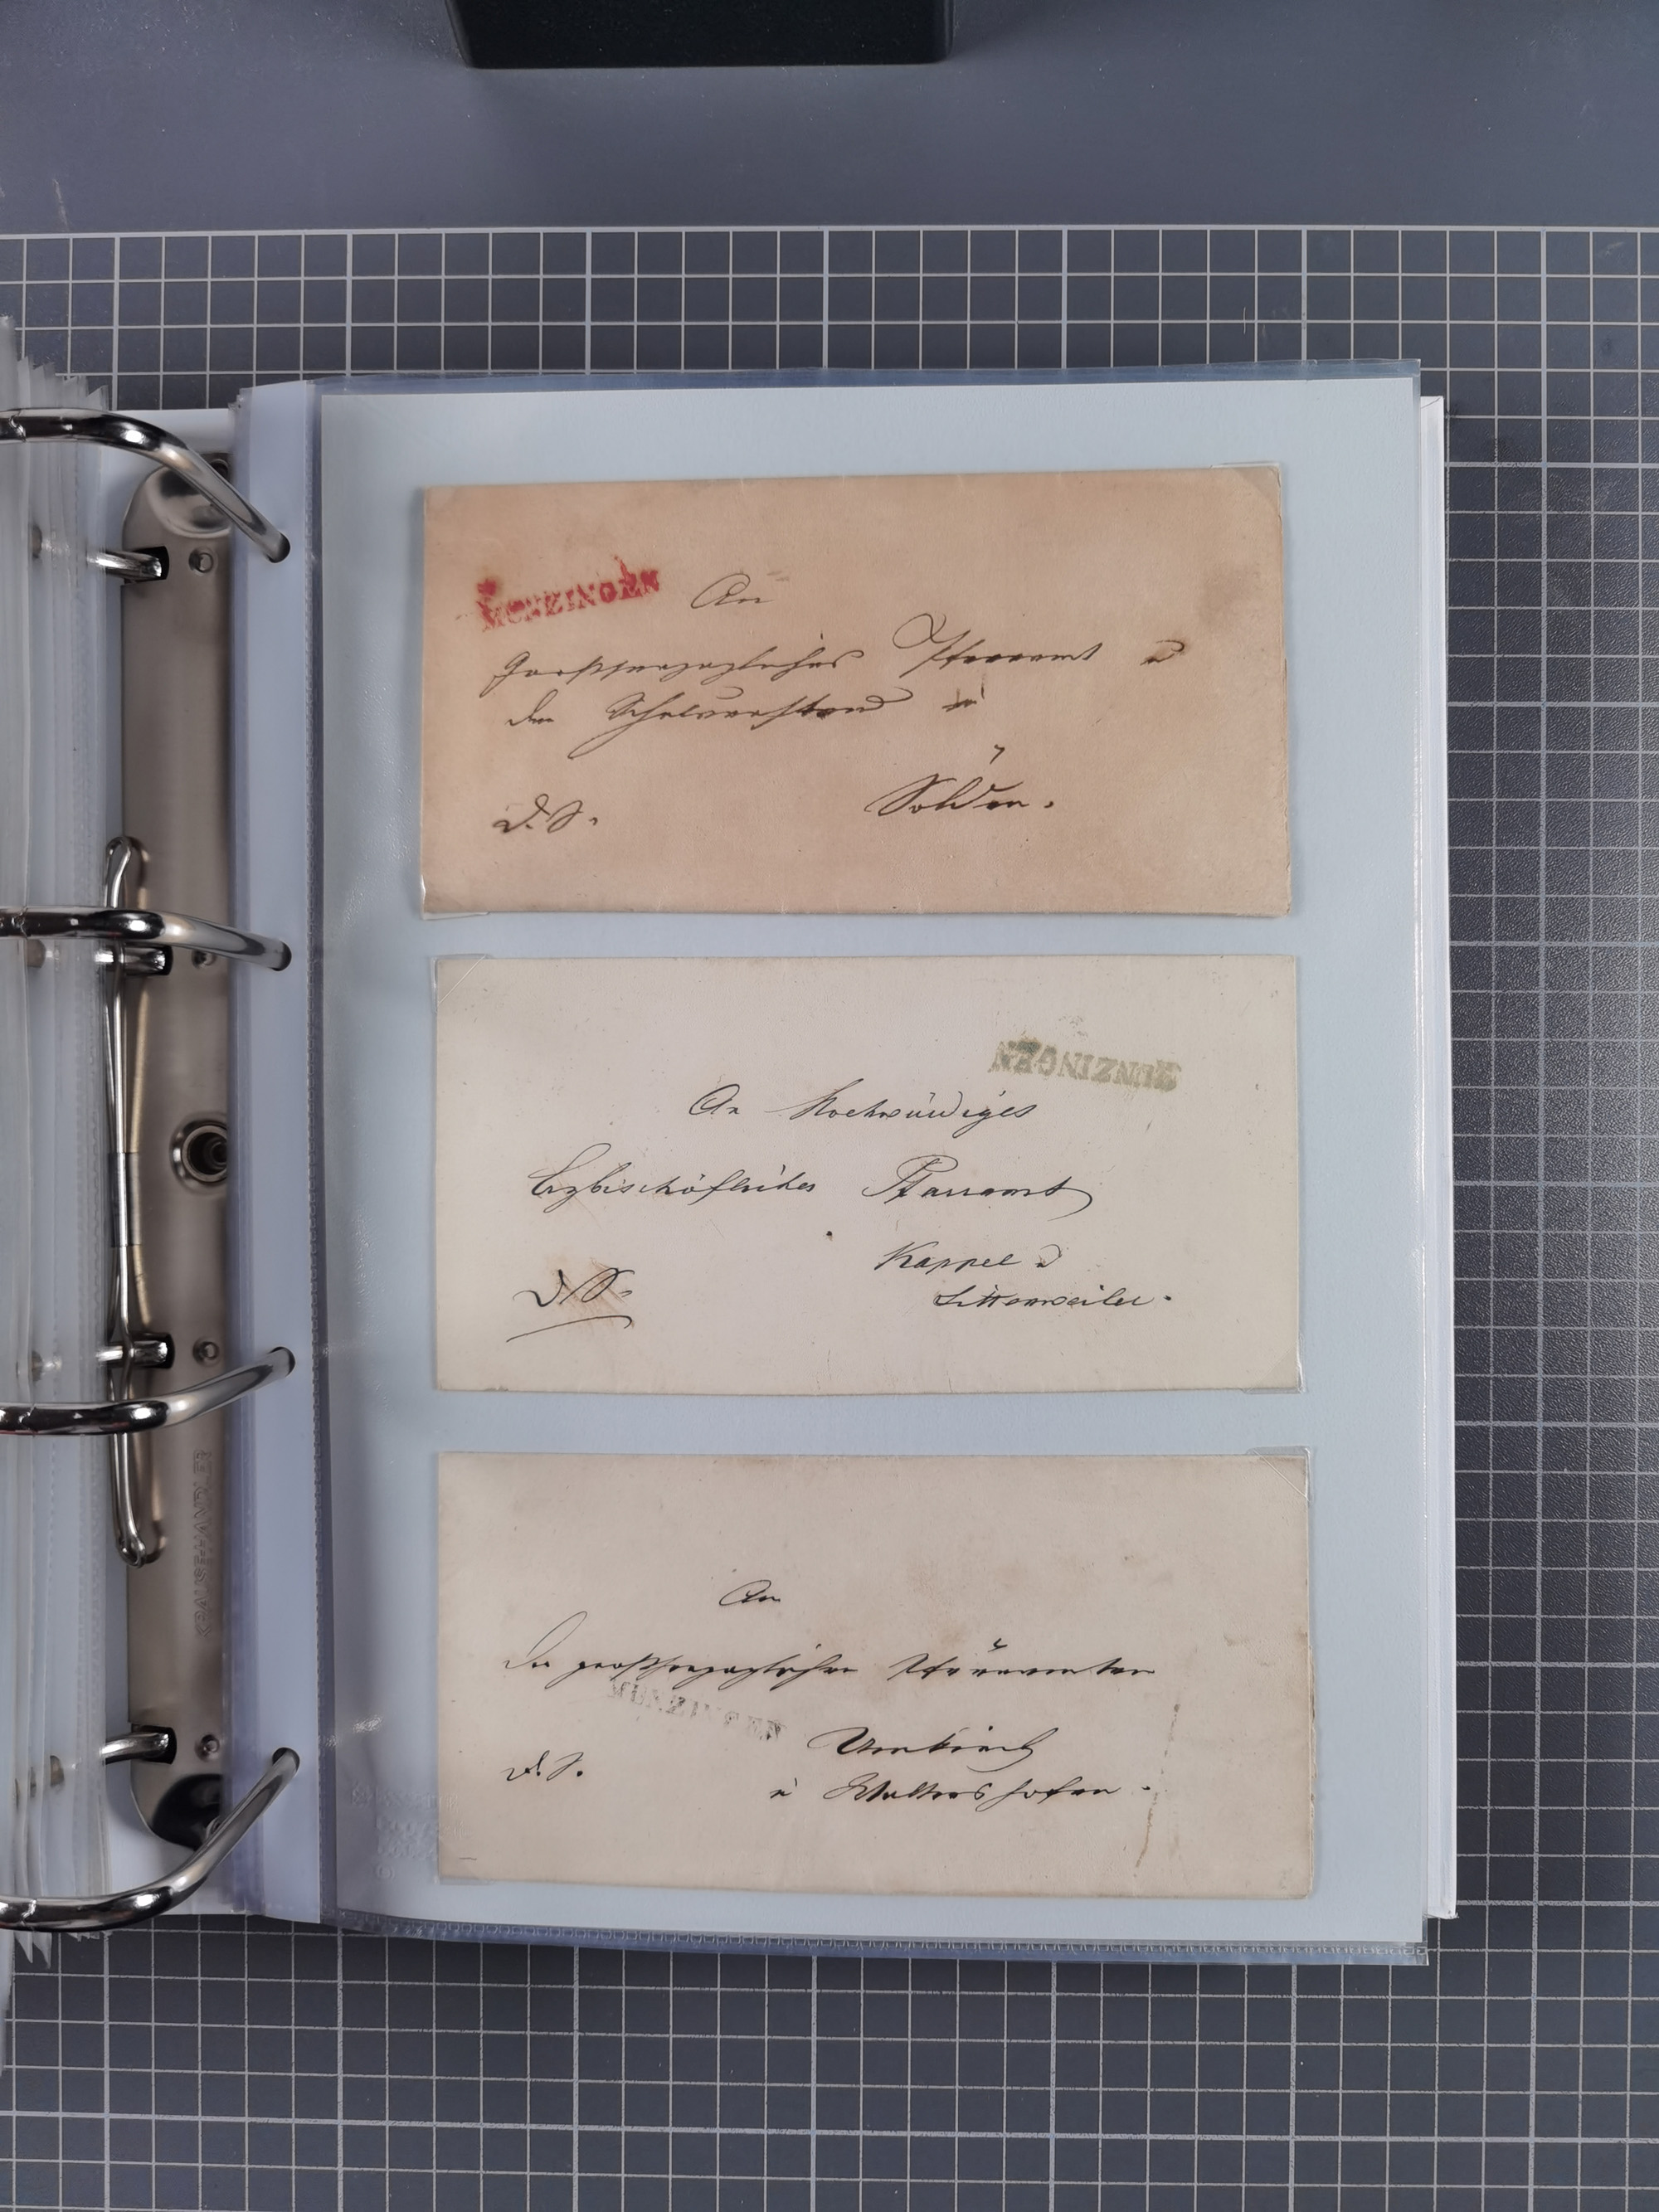 MUNZINGEN
An
Großherzogliches Pfarramt u
den Schulvorstand in
Sölden.
D. S.
MUNZINGEN
An Hochwürdiges
Erzbischöfliches Pfarramt
Kappel u
Littenweiler.
D. S.
An
die großherzoglichen Pfarrämter
MUNZINGEN
Umkirch
u Waltershofen.
D. S.
KRAUSE-HANDLER